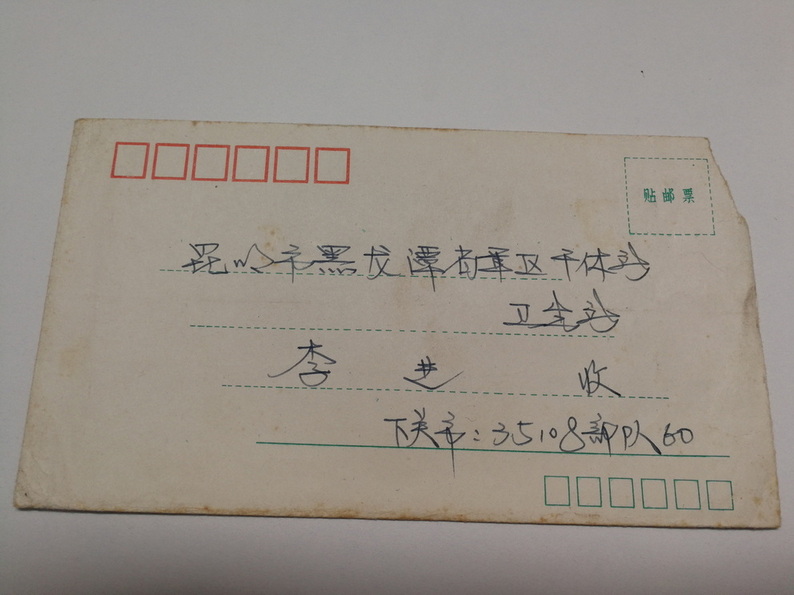 贴邮票
昆明市黑龙潭省军区干休所
卫生所
李 进 收
下关市:35108部队60